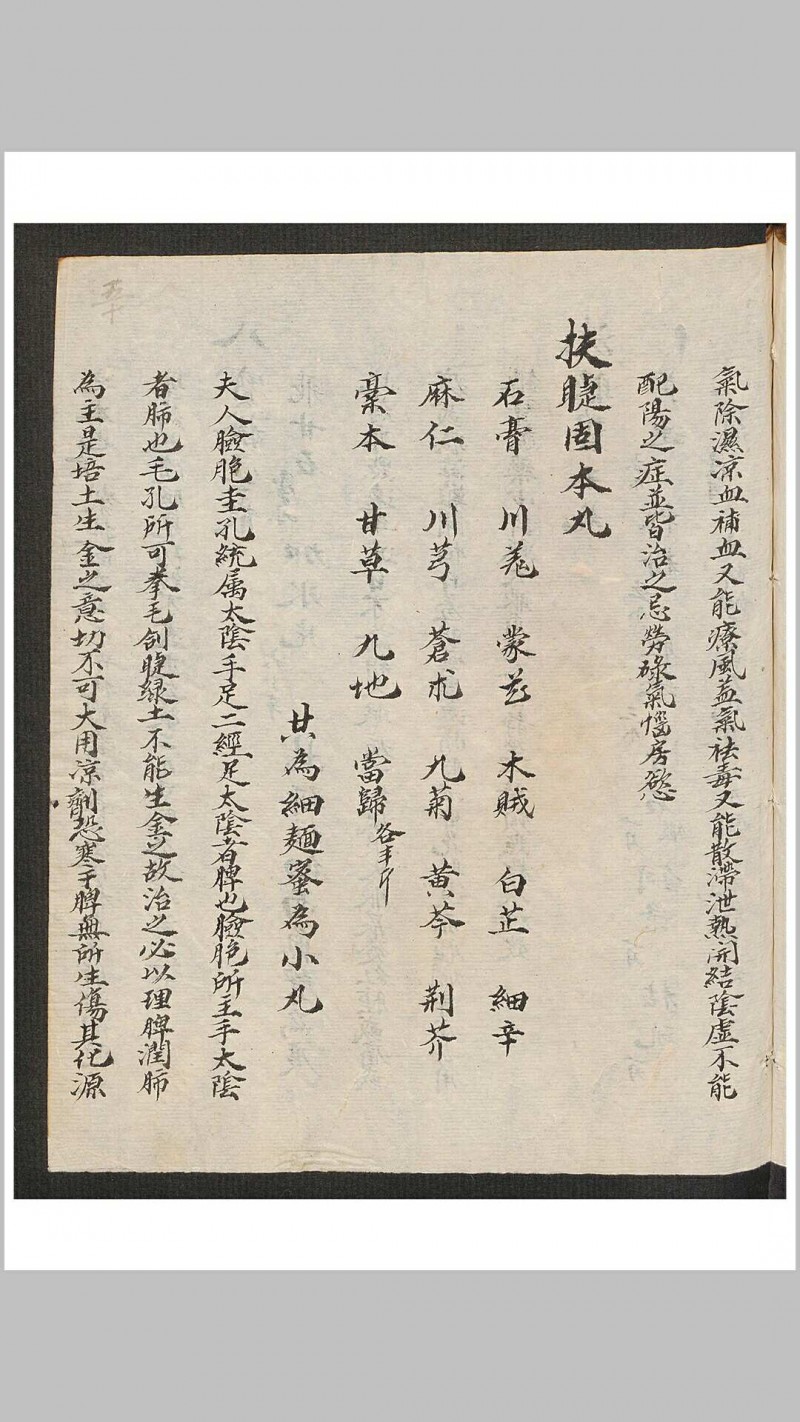 氣除濕凉血補血又能療風益氣祛毒又能散滯泄熱開結陰虛不能
配陽之症並皆治之忌勞碌氣惱房慾
扶睫固本丸
石膏 川羗 蒙花 木賊 白芷 細辛
麻仁 川芎 蒼朮 九菊 黄芩 荆芥
藁本 甘草 九地 當歸 各半斤
共為細麵蜜為小丸
夫人臉胞毛孔統属太陰手足二經足太陰者脾也臉胞所主手太陰
者肺也毛孔所司拳毛刽睫緑土不能生金之故治之必以理脾潤肺
為主是培土生金之意切不可大用凉劑恐寒于脾無所生傷其化源